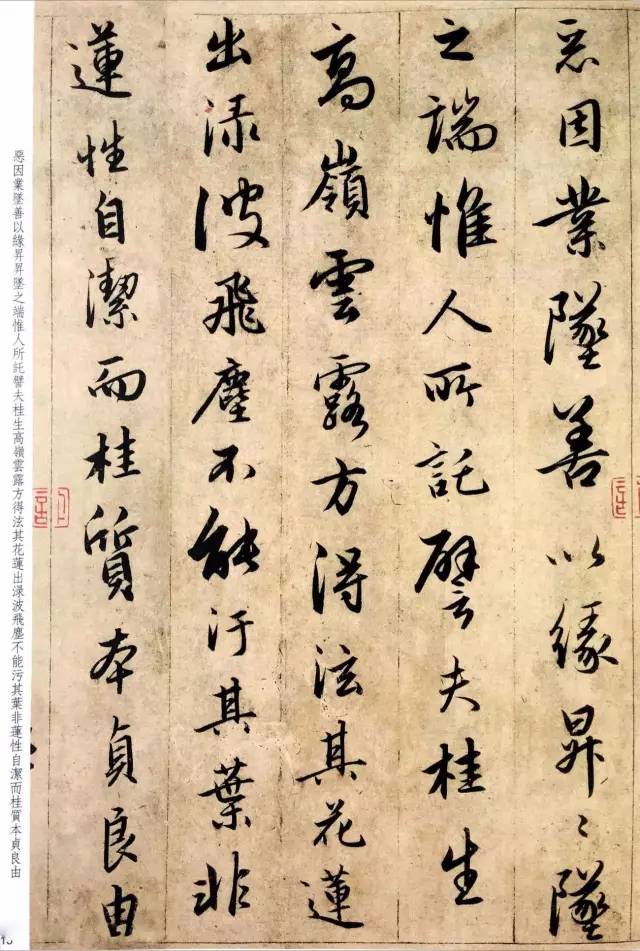 惡因業墜善以緣昇昇墜之端惟人所託譬夫桂生高嶺雲露方得泫其花蓮出渌波飛塵不能污其葉非蓮性自潔而桂質本貞良由
惡因業墜善以緣昇〻墜
之端惟人所託譬夫桂生
高嶺雲露方得泫其花蓮
出渌波飛塵不能汙其葉非
蓮性自潔而桂質本貞良由